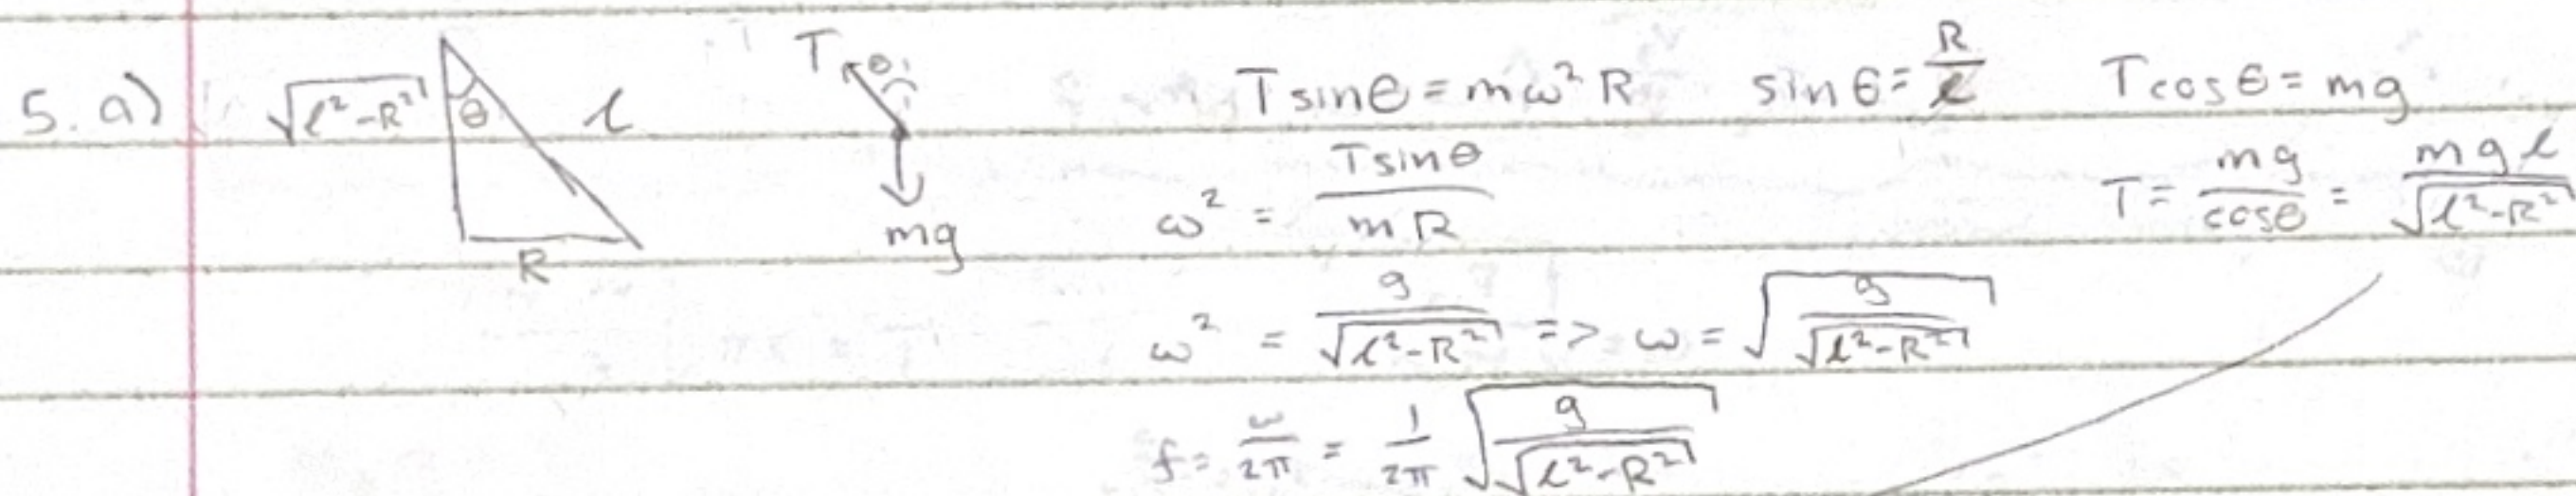 5. a) √(l²-R²) θ l R T θ mg Tsinθ = mω²R sinθ = R/l Tcosθ = mg
ω² = Tsinθ/mR T = mg/cosθ = mgl/√(l²-R²)
ω² = g/√(l²-R²) => ω = √(g/√(l²-R²))
f = ω/2π = 1/2π √(g/√(l²-R²))